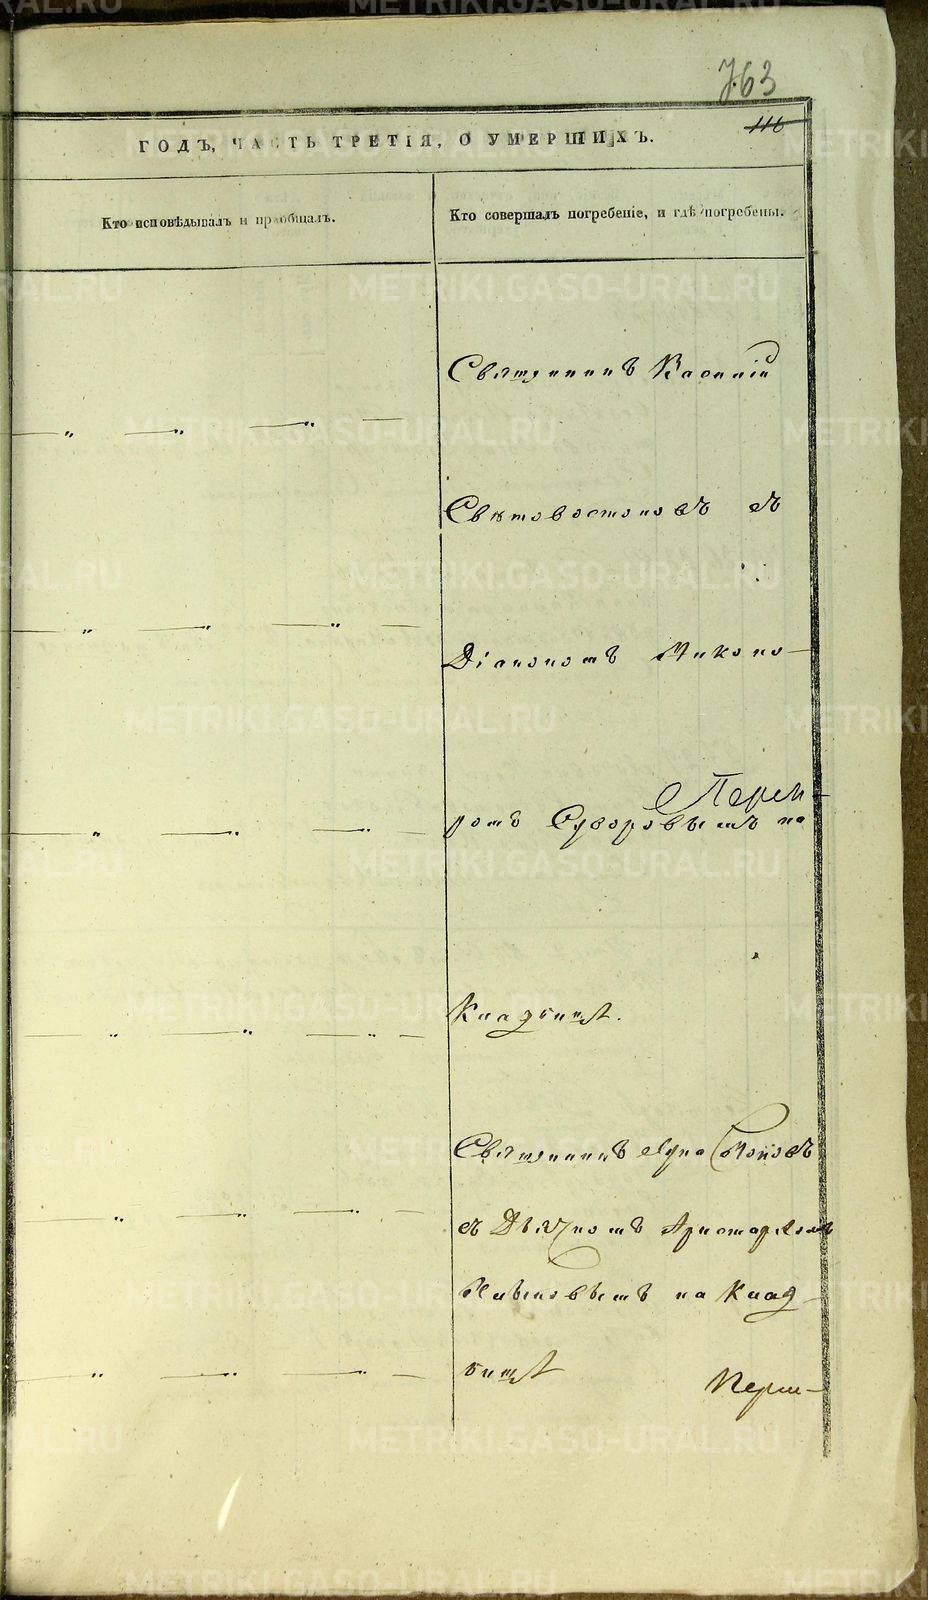 763
116
ГОДЪ, ЧАСТЬ ТРЕТІЯ, О УМЕРШИХЪ.
Кто исповѣдывалъ и пріобщалъ.
Кто совершалъ погребеніе, и гдѣ погребены.
Священникъ Василій
Свѣтовостоковъ съ
Діакономъ Никано-
ромъ Суворовымъ на
Кладбищѣ.
Священникъ Лука
съ Дьячкомъ Аристархомъ
на Клад-
бищѣ
METRIKI.GASO-URAL.RU